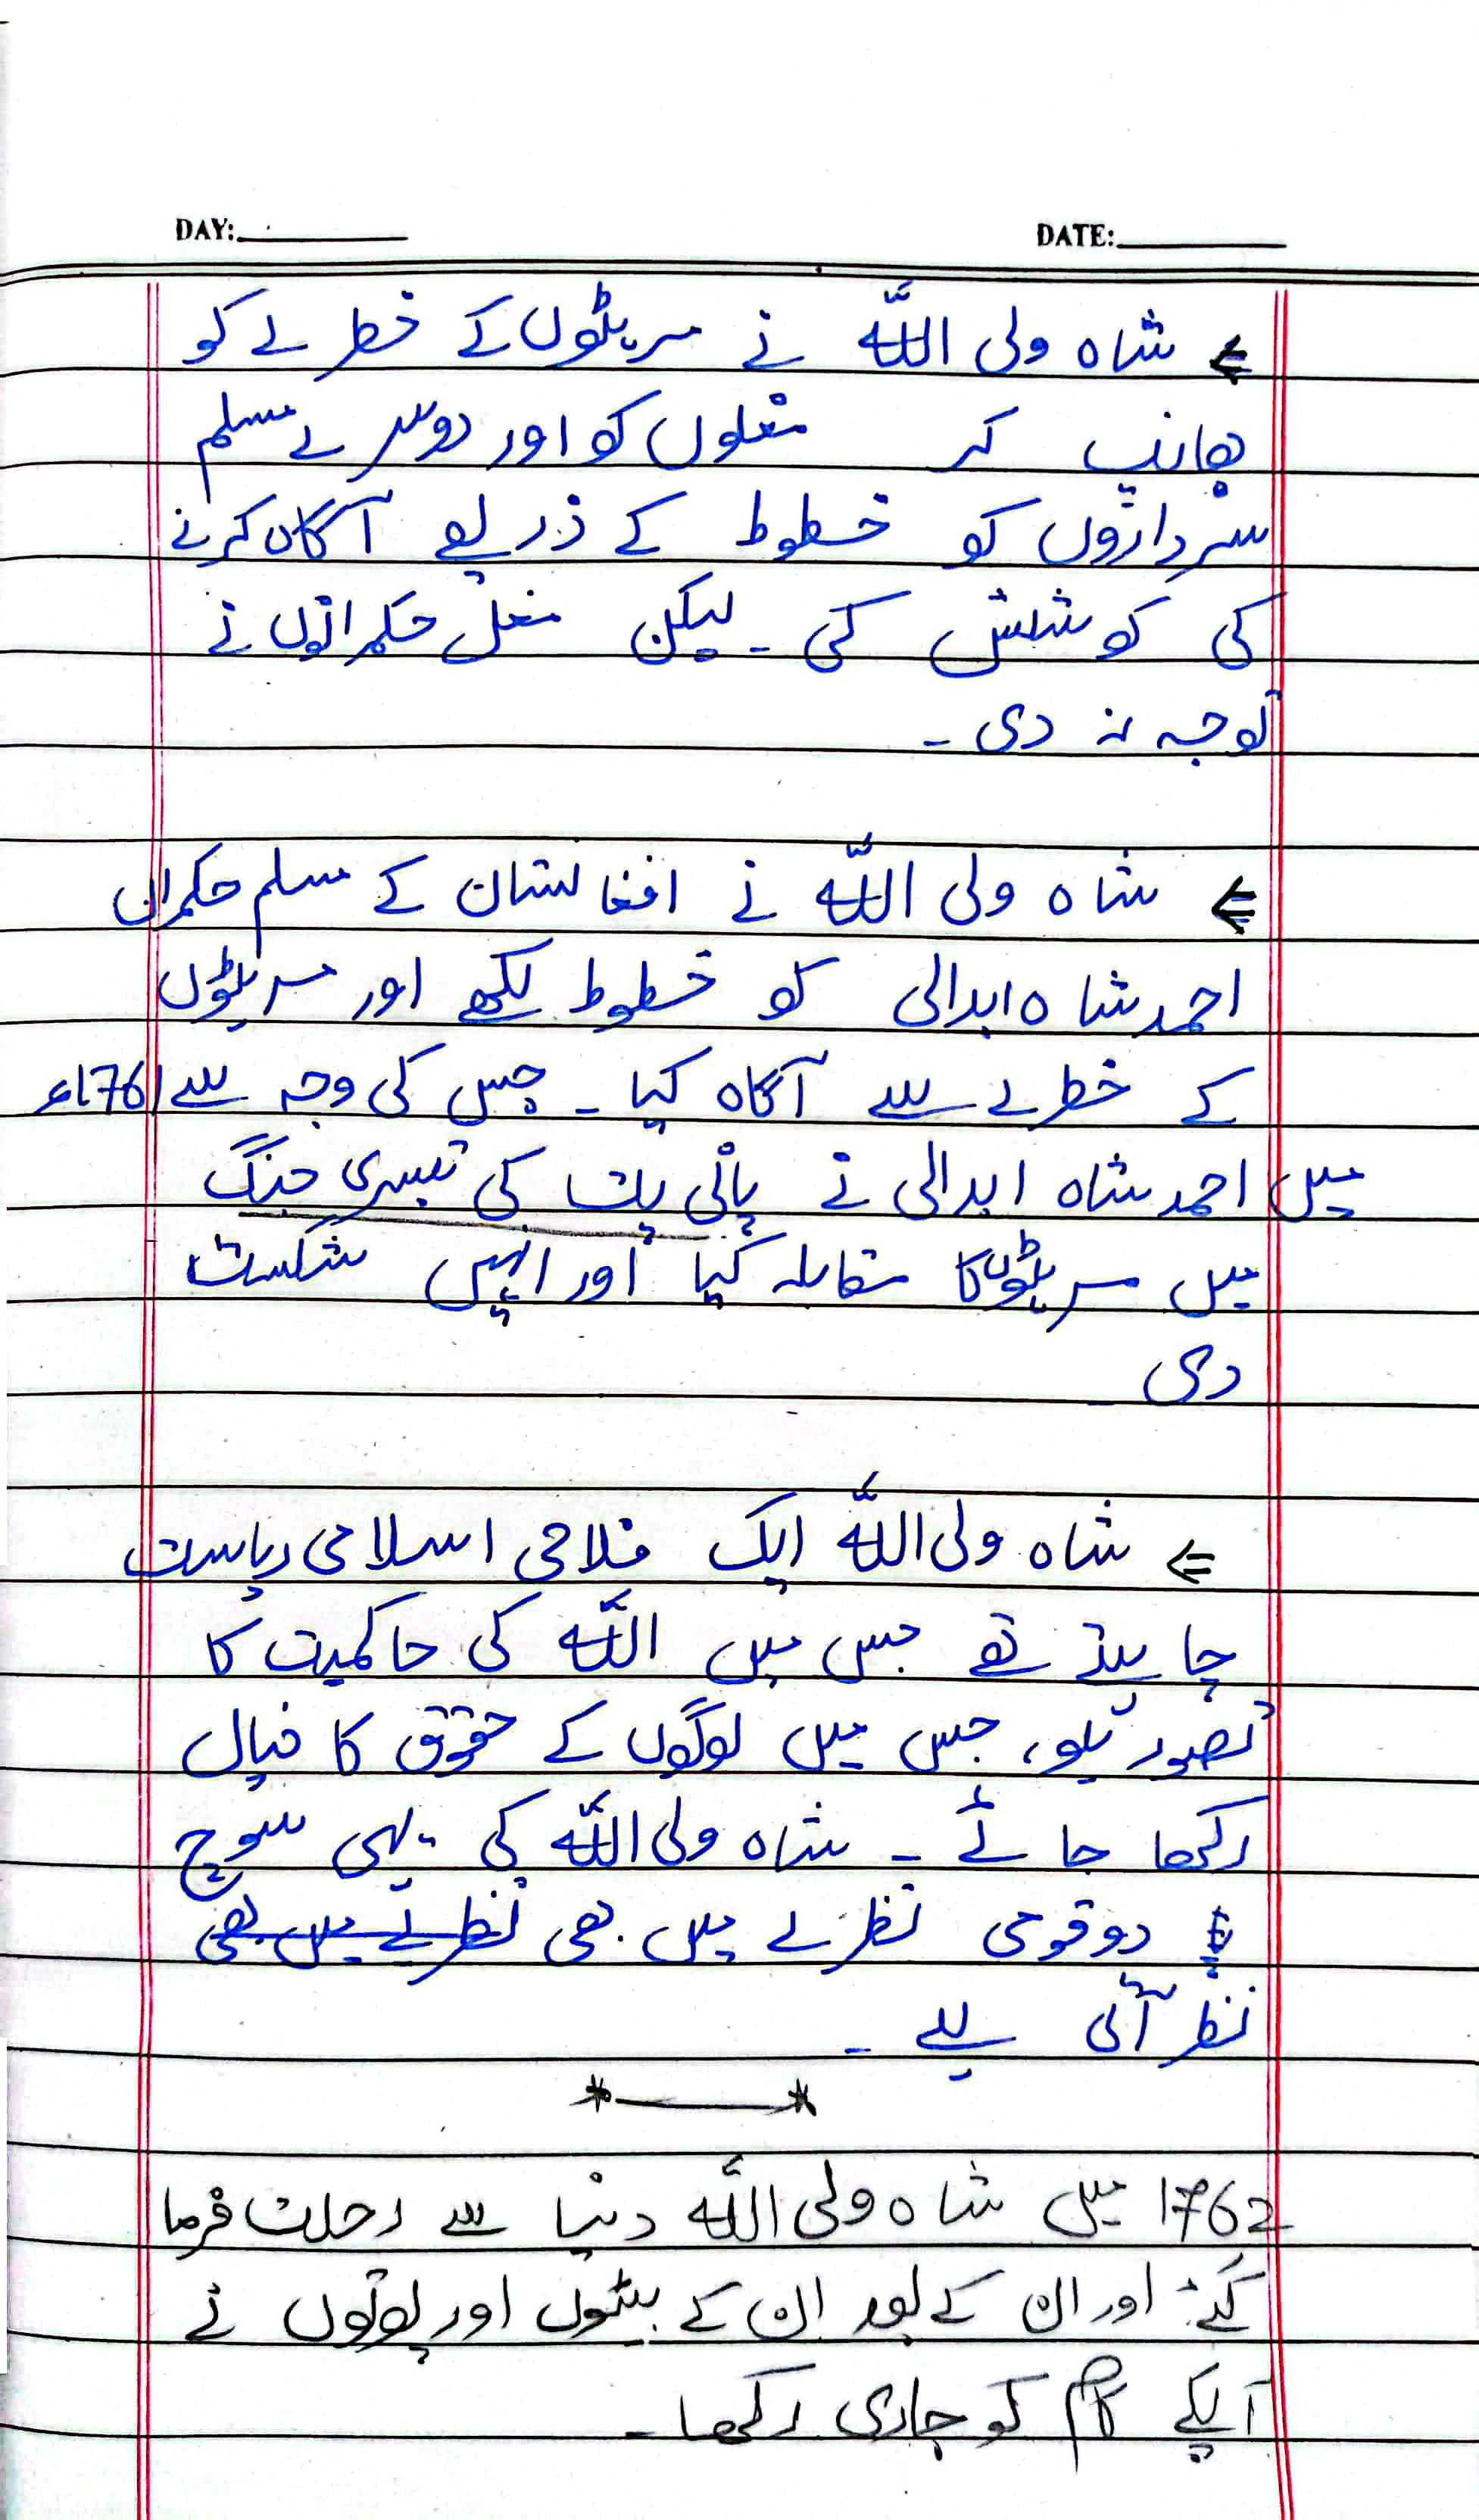 DAY:__________ DATE:__________
⇐ شاہ ولی اللّٰہ نے مرہٹوں کے خطرے کو
بھانپ کر مغلوں کو اور دوسرے مسلم
سرداروں کو خطوط کے ذریعے آگاہ کرنے
کی کوشش کی ۔ لیکن مغل حکمرانوں نے
توجہ نہ دی ۔
⇐ شاہ ولی اللّٰہ نے افغانستان کے مسلم حکمران
احمد شاہ ابدالی کو خطوط لکھے اور مرہٹوں
کے خطرے سے آگاہ کیا ۔ جس کی وجہ سے 1761ء
میں احمد شاہ ابدالی نے پانی پت کی تیسری جنگ
میں مرہٹوں کا مقابلہ کیا اور انہیں شکست
دی
⇐ شاہ ولی اللّٰہ ایک فلاحی اسلامی ریاست
چاہتے تھے جس میں اللّٰہ کی حاکمیت کا
تصور ہو، جس میں لوگوں کے حقوق کا خیال
رکھا جائے ۔ شاہ ولی اللّٰہ کی یہی سوچ
دو قومی نظرے میں بھی نظریے میں بھی
نظر آتی ہے ۔
*——*
1762 میں شاہ ولی اللّٰہ دنیا سے رحلت فرما
گئے اور ان کے بعد ان کے بیٹوں اور پوتوں نے
آپکے کام کو جاری رکھا ۔